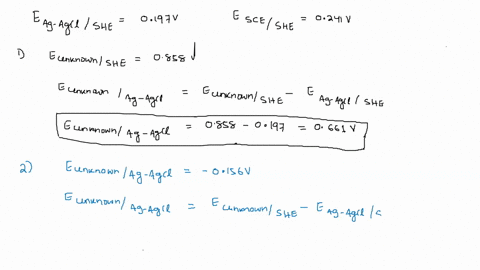 E Ag-AgCl/SHE = 0.197V E SCE/SHE = 0.241V
1) E unknown/SHE = 0.858
E unknown/Ag-AgCl = E unknown/SHE - E Ag-AgCl/SHE
E unknown/Ag-AgCl = 0.858 - 0.197 = 0.661 V
2) E unknown/Ag-AgCl = -0.156V
E unknown/Ag-AgCl = E unknown/SHE - E Ag-AgCl/